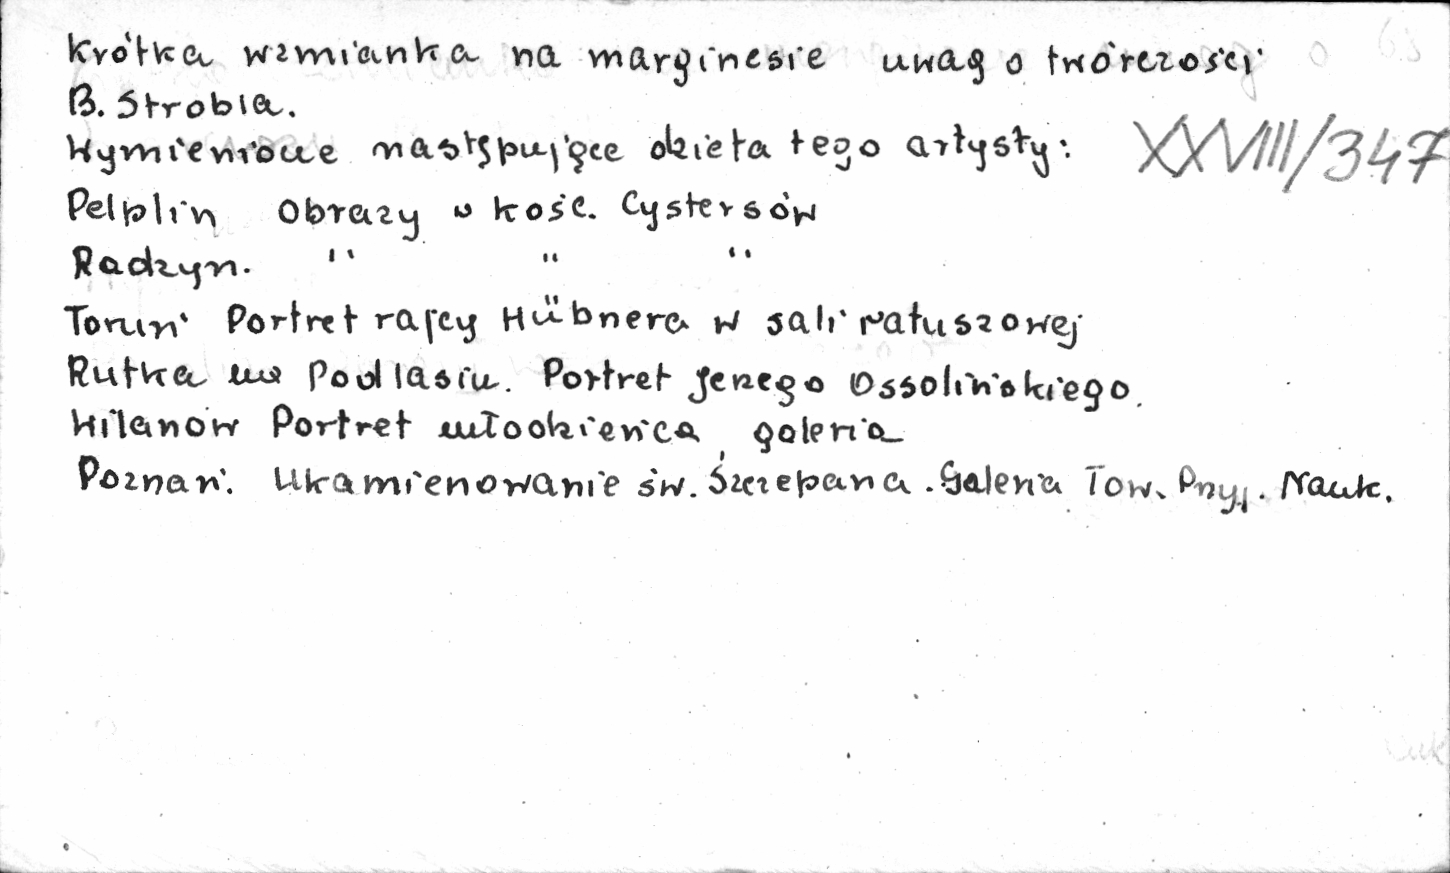 Krótka wzmianka na marginesie uwag o twórczości
B. Strobla.
Wymienione następujące dzieła tego artysty: XXVIII/347
Pelplin Obrazy w kośc. Cystersów
Radzyn. " " "
Toruń Portret rajcy Hübnera w sali ratuszowej
Rutka na Podlasiu. Portret Jerzego Ossolińskiego.
Wilanów Portret młodzieńca, galeria
Poznań. Ukamienowanie św. Szczepana. Galeria Tow. Przyj. Nauk.